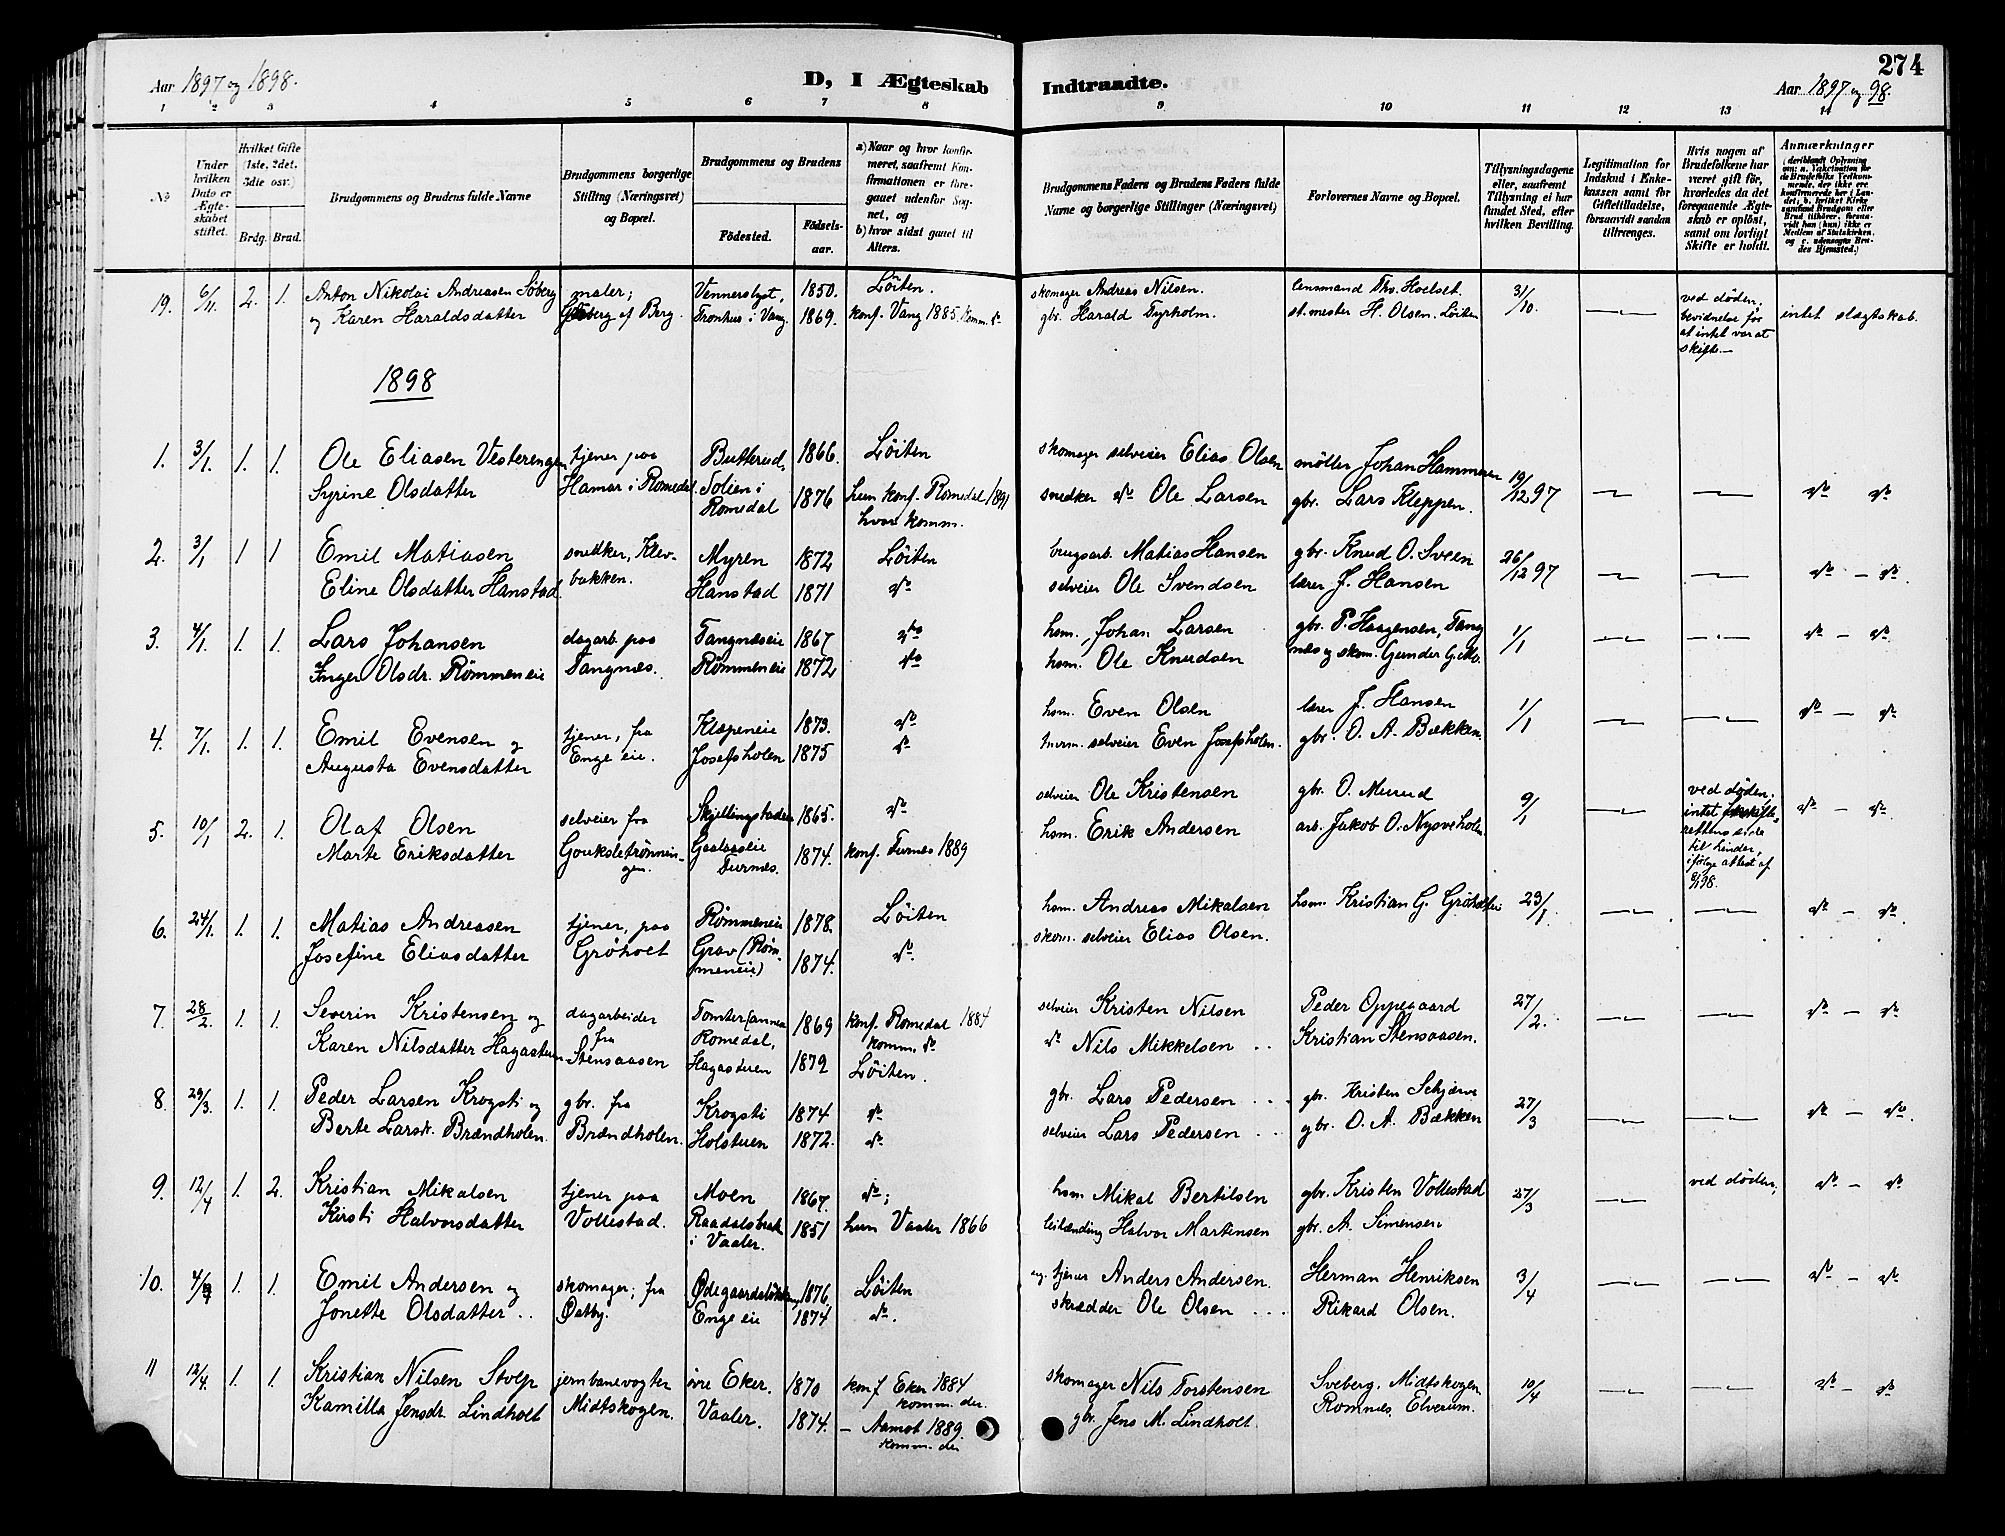 274
Aar 1897 og 1898.
D, I Ægteskab
Indtraadte.
Aar 1897 og 98.
1 2 3 4 5 6 7 8 9 10 11 12 13 14
No
Under hvilken Dato er Ægteskabet stiftet.
Hvilket Gifte (1ste, 2det, 3die osv.)
Brdg. Brud.
Brudgommens og Brudens fulde Navne
Brudgommens borgerlige Stilling (Næringsvei) og Bopæl.
Brudgommens og Brudens
Fødested.
Fødselsaar.
a) Naar og hvor konfirmeret, saafremt Konfirmationen er foregaaet udenfor Sognet, og
b) hvor sidst gaaet til Alters.
Brudgommens Faders og Brudens Faders fulde Navne og borgerlige Stillinger (Næringsvei)
Forlovernes Navne og Bopæl.
Tillysningsdagene eller, saafremt Tillysning ei har fundet Sted, efter hvilken Bevilling.
Legitimation for Indskud i Enkekassen samt for Giftetilladelse, forsaavidt saadan tiltrænges.
Hvis nogen af Brudefolkene har været gift før, hvorledes da det foregaaende Ægteskab er opløst, samt om lovligt Skifte er holdt.
Anmærkninger
19. 6/11. 2. 1. Anton Nikolai Andreasen Søberg maler; Vennerslyst, 1850. Løiten. skomager Andreas Nilsen. lensmand Thv. Hoelset. 31/10. ved døden, intet slægtskab.
og Karen Haraldsdatter af Berg. Tronhus i Vang. 1869. konf. Vang 1885 komm. do gbr. Harald Tyrholm. st.mester H. Olsen. Løiten bevidnelse for
at intet var at
skifte.—
1898
1. 3/1. 1. 1. Ole Eliasen Vesterengen tjener paa Butterud, 1866. Løiten skomager selveier Elias Olsen møller Johan Hammeren 19/12 97 do do
Syrine Olsdatter Hamar i Romedal. Solien i Romedal 1876 hun konf. Romedal 1891 hvor komm. snedker do Ole Larsen gbr. Lars Kleppen.
2. 3/1 1 1 Emil Matiasen snedker, Klevbakken. Myren 1872 Løiten brugsarb. Matias Hansen gbr. Knud O. Sveen 26/12 97 do — do.
Eline Olsdatter Hanstad Hanstad 1871 do selveier Ole Svendsen lærer J. Hansen
3. 4/1. 1. 1. Lars Johansen dagarb. paa Tangnæseie 1867 do hsm. Johan Larsen gbr. P. Haagensen, Tang 1/1 do — do.
Inger Olsdr. Rømmeneie Tangnæs. Rømmeneie 1872 do hsm. Ole Knudsen næs og skom. Gunder G.
4. 7/1. 1. 1. Emil Evensen og tjener, fra Klæpeneie 1873. do hsm. Even Olsen lærer J. Hansen 1/1 do — do.
Augusta Evensdatter Enge eie. Josefsholen 1875 do murm. selveier Even Josefsholen. gbr. O. A. Bækken.
5. 10/1 2. 1. Olaf Olsen selveier fra Skjellingstadeie 1865. do selveier Ole Kristensen gbr. O. Murud 9/1 ved døden. do — do.
Marte Eriksdatter Gaalaaseie Furnes. 1874. konf. Furnes 1889 hsm. Erik Andersen arb. Jakob O. intet
rettens side
til hinder,
ifølge attest af
98.
6. 24/1. 1. 1. Matias Andreasen tjener, paa Rømmeneie 1878. Løiten hsm. Andreas Mikalsen hsm. Kristian G. 23/1. do — do.
Josefine Eliasdatter Grøholt Grav (Rømmeneie) 1874. do. skom. selveier Elias Olsen.
7. 28/2. 1. 1. Severin Kristensen og dagarbeider Tomter(annex Romedal, 1869 konf. Romedal 1884 komm. do selveier Kristen Nilsen Peder Oppegaard 27/2. do — do.
Karen Nilsdatter Hagastuen fra Stensaasen Hagastuen 1872 Løiten. do Nils Mikkelsen . . Kristian Stensaasen.
8. 29/3. 1. 1. Peder Larsen Krogsti og gbr. fra Krogsti 1874 do gbr. Lars Pedersen . . . gbr. Kristen Schjærve 27/3 do — do.
Berte Larsdr. Brændholen. Brændholen. Holstuen 1872. do selveier Lars Pedersen . . gbr. O. A. Bækken
9. 12/4 1. 2. Kristian Mikalsen tjener paa Moen 1867. do; hsm. Mikal Bertilsen gbr. Kristen Vollestad 27/3 ved døden, do — do
Kirsti Halvorsdatter Vollestad. Raadalsbak i Vaaler. 1851 hun Vaaler 1866 leilænding Halvor Martensen gbr. A. Simensen
10. 1. 1. Emil Andersen og skomager; fra 1876 Løiten tjener Anders Andersen. Herman Henriksen 3/4 do — do.
Jonette Olsdatter . . Østby. Enge eie 1874 do. skrædder Ole Olsen . . . Rikard Olsen.
11 12/4. 1. 1. Kristian Nilsen Stolp jernbanevogter øvre Eker. 1870 konf Eker 1884 komm. der skomager Nils Torstensen Sveberg, Midtskogen 10/4 do — do
Kamilla Jensdr. Lindholt Midtskogen. Vaaler. 1874. — Aamot 1889. komm. der gbr. Jens M. Lindholt. Romnæs, Elverum.